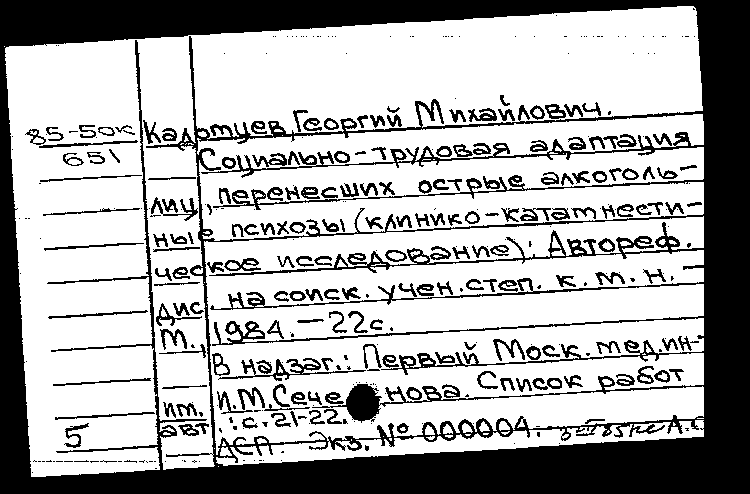 85-50к Калотцев, Георгий Михайлович.
651 Социально-трудовая адаптация
лиц, перенесших острые алкоголь-
ные психозы (клинико-катамнести-
ческое исследование): Автореф.
дис. на соиск. учен. степ. к. м. н. –
М., 1984. – 22с.
В надзаг.: Первый Моск. мед. ин-
им. И.М. Сеченова. Список работ
5 авт.: с. 21-22.
ДСП. Экз. № 000004.